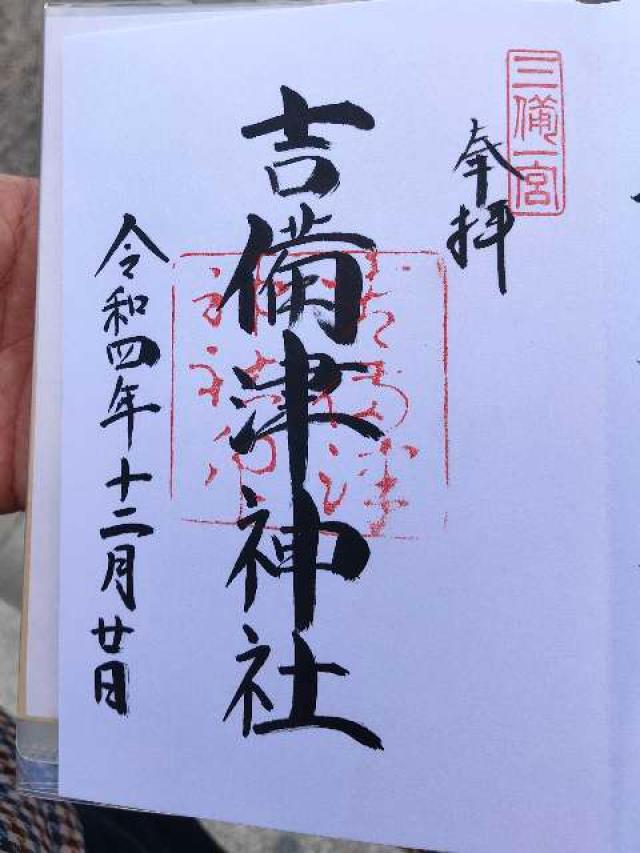 三備一宮
奉拝
吉備津神社
令和四年十二月廿日